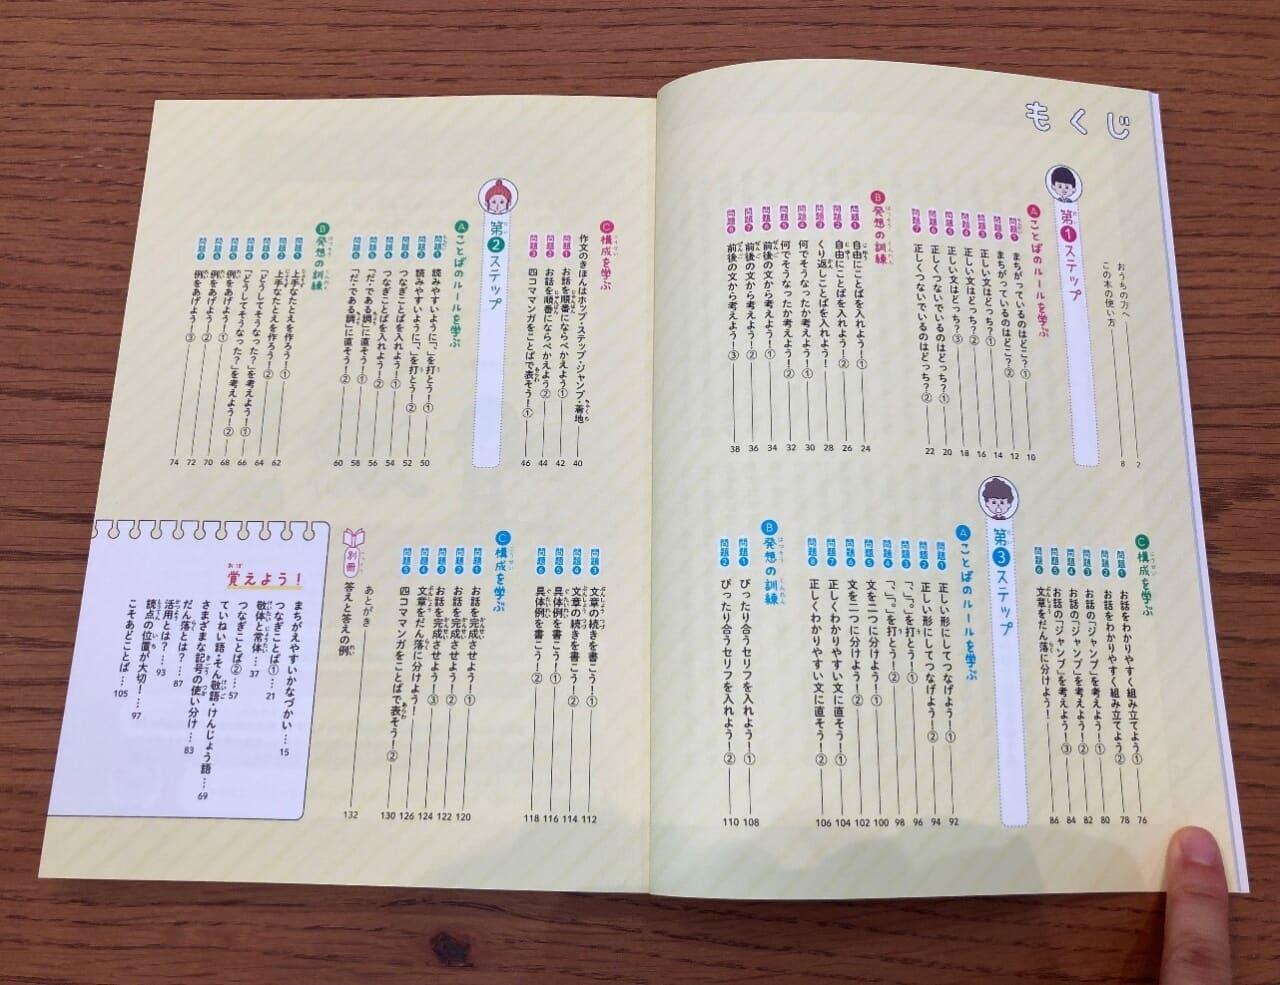 もくじ
おうちの方へ 2
この本の使い方 8
第1ステップ
A ことばのルールを学ぶ
問題1 まちがっているのはどこ?① 10
問題2 まちがっているのはどこ?② 12
問題3 正しい文はどっち?① 14
問題4 正しい文はどっち?② 16
問題5 正しい文はどっち?③ 18
問題6 正しくつないでいるのはどっち?① 20
問題7 正しくつないでいるのはどっち?② 22
B 発想の訓練
問題1 自由にことばを入れよう!① 24
問題2 自由にことばを入れよう!② 26
問題3 くり返しことばを入れよう! 28
問題4 何でそうなったか考えよう!① 30
問題5 何でそうなったか考えよう!② 32
問題6 前後の文から考えよう!① 34
問題7 前後の文から考えよう!② 36
問題8 前後の文から考えよう!③ 38
C 構成を学ぶ
作文のきほんはホップ・ステップ・ジャンプ・着地 40
問題1 お話を順番にならべかえよう① 42
問題2 お話を順番にならべかえよう② 44
問題3 四コママンガをことばで表そう!① 46
第2ステップ
A ことばのルールを学ぶ
問題1 読みやすいように「、」を打とう!① 50
問題2 読みやすいように「、」を打とう!② 52
問題3 つなぎことばを入れよう!① 54
問題4 つなぎことばを入れよう!② 56
問題5 「だ・である調」に直そう!① 58
問題6 「だ・である調」に直そう!② 60
B 発想の訓練
問題1 上手なたとえを作ろう!① 62
問題2 上手なたとえを作ろう!② 64
問題3 「どうしてそうなった?」を考えよう!① 66
問題4 「どうしてそうなった?」を考えよう!② 68
問題5 例をあげよう!① 70
問題6 例をあげよう!② 72
問題7 例をあげよう!③ 74
C 構成を学ぶ
問題1 お話をわかりやすく組み立てよう① 76
問題2 お話をわかりやすく組み立てよう② 78
問題3 お話の「ジャンプ」を考えよう!① 80
問題4 お話の「ジャンプ」を考えよう!② 82
問題5 お話の「ジャンプ」を考えよう!③ 84
問題6 文章をだん落に分けよう! 86
第3ステップ
A ことばのルールを学ぶ
問題1 正しい形にしてつなげよう!① 92
問題2 正しい形にしてつなげよう!② 94
問題3 「、」「。」を打とう!① 96
問題4 「、」「。」を打とう!② 98
問題5 文を二つに分けよう!① 100
問題6 文を二つに分けよう!② 102
問題7 正しくわかりやすい文に直そう!① 104
問題8 正しくわかりやすい文に直そう!② 106
B 発想の訓練
問題1 ぴったり合うセリフを入れよう!① 108
問題2 ぴったり合うセリフを入れよう!② 110
問題3 文章の続きを書こう!① 112
問題4 文章の続きを書こう!② 114
問題5 具体例を書こう!① 116
問題6 具体例を書こう!② 118
C 構成を学ぶ
問題1 お話を完成させよう!① 120
問題2 お話を完成させよう!② 122
問題3 お話を完成させよう!③ 124
問題4 文章をだん落に分けよう! 126
問題5 四コママンガをことばで表そう!② 130
あとがき 132
別冊 答えと答えの例
覚えよう!
まちがえやすいかなづかい…15
つなぎことば①…21
敬体と常体…37
つなぎことば②…57
ていねい語・そん敬語・けんじょう語…69
さまざまな記号の使い分け…83
だん落とは?…87
活用とは?…93
読点の位置が大切!…97
こそあどことば…105